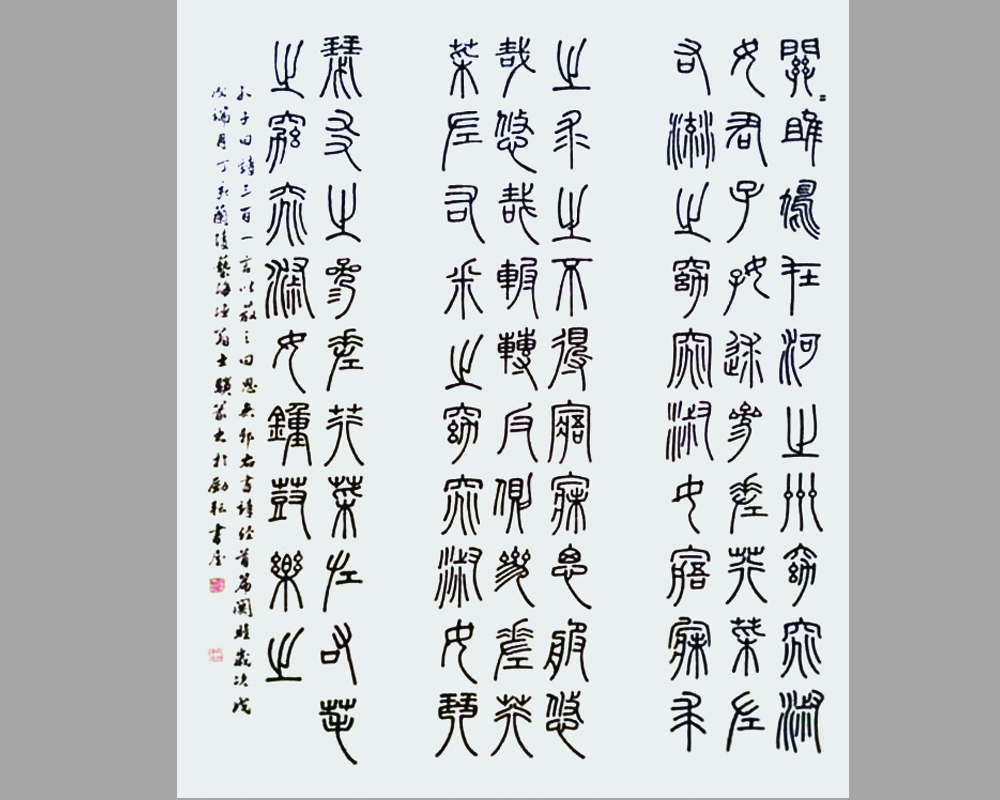 關〻雎鳩在河之州窈窕淑
女君子好逑參差荇菜左
右流之窈窕淑女寤寐求
之求之不得寤寐思服悠
哉悠哉輾轉反側參差荇
菜左右采之窈窕淑女琴
瑟友之參差荇菜左右芼
之窈窕淑女鐘鼓樂之
孔子曰詩三百一言以蔽之曰思無邪右書詩經首篇關雎歲次戊
戌端月丁亥蘭陵藝海翁士驥篆書於勁書屋